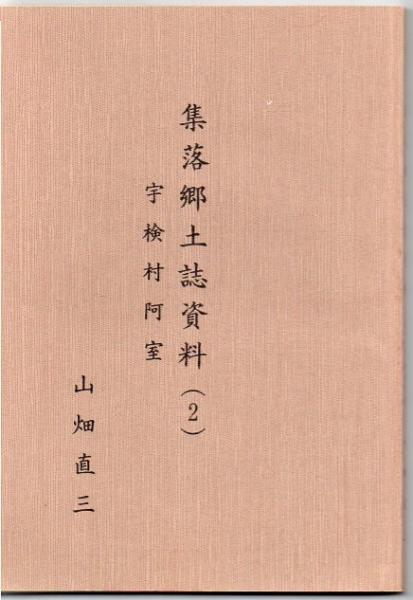 集落郷土誌資料（2）
宇検村阿室
山畑直三